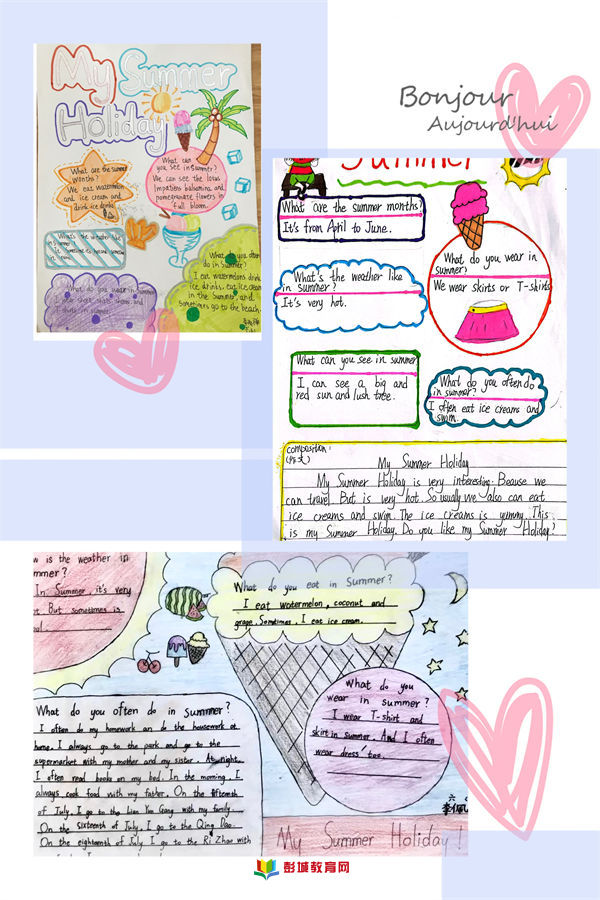 My Summer
Holiday
What are the summer
months?
We eat watermelon
and ice cream and
drink ice drinks.
What can
you see in summer?
We can see the lotus
Impatiens balsamina and
pomegranate flowers in
full bloom.
What's the weather like
in summer?
What do you often
do in Summer?
I eat watermelons drink
ice drinks, eat ice cream
in the Summer, and
sometimes go to the beach.
What do you wear in summer
Bonjour
Aujourd'hui
Summer
What are the summer months
It's from April to June.
What's the weather like
in summer?
It's very hot.
What do you wear in
summer?
We wear skirts or T-skirts
What can you see in summer
I can see a big and
red sun and lush tree.
What do you often do
in summer?
I often eat ice creams and
swim.
composition:
(作文)
My Summer Holiday
My Summer Holiday is very interesting. Becaue we
can travel. But is very hot. So usually we also can eat
ice creams and swim. The ice creams is yummy. This
is my Summer Holiday. Do you like my Summer Holiday?
w is the weather in
mmer?
In Summer, it's very
t. But sometimes is
ol.
What do you eat in Summer?
I eat watermelon, coconut and
grape. Sometimes, I eat ice cream.
What do you
wear in summer?
I wear T-shirt and
skirt in summer. And I often
wear dress, too.
What do you often do in summer?
I often do my homework an do the housework at
home. I always go to the park and go to the
supermarket with my mother and my sister. At night,
I often read books on my bed. In the morning, I
always cook food with my father. On the fifteenth
of July, I go to the Lian Yun Gang with my family.
On the sixteenth of July, I go to the Qing Dao.
On the eighteenth of July I go to the Ri Zhao with
My Summer Holiday!
彭城教育网